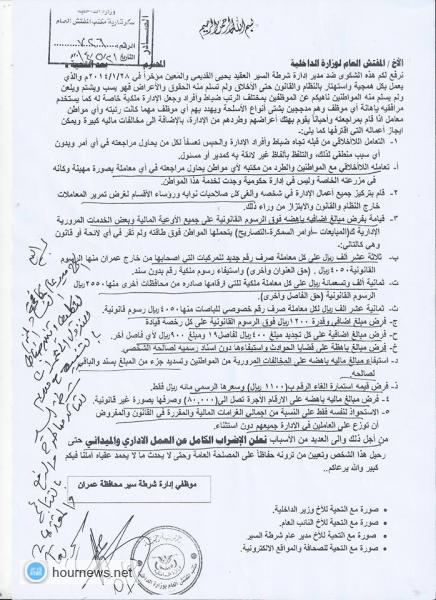 وزارة الداخلية
سكرتارية مكتب المفتش العام
الصادر
الرقم
التاريخ
بسم الله الرحمن الرحيم
الأخ / المفتش العام لوزارة الداخلية المحترم
بعد التحية ،
نرفع لكم هذه الشكوى ضد مدير إدارة شرطة السير العقيد يحيى القديمي والمعين مؤخراً في ٢٠١٤/١/٢٨م والذي
يعمل بكل همجية واستهتار بالنظام والقانون حتى الأخلاق ولم تسلم منه الحقوق والأعراض فهو يسب ويشتم ويلعن
ولم يسلم منه المواطنين ناهيكم عن الموظفين بمختلف الرتب ضباط وأفراد وجعل الإدارة ملكية خاصة له كما يستخدم
مرافقيه بإهانة أي موظف وهم مدججين بشتى أنواع الأسلحة ويهدد بهم أي موظف مهما كانت رتبته وأي مواطن
معامل إذا قام بمراجعته وأحياناً يقوم بهتك أعراضهم وطردهم من الإدارة، بالإضافة الى مخالفات مالية كبيرة ويمكن
إيجاز أعماله التي اقترفها كما يلي:-
١- التعامل اللاأخلاقي من قبله تجاه ضباط وأفراد الإدارة والحبس تعسفاً لكل من يحاول مراجعته في أي أمر وبدون
أي سبب منطقي لذلك، والتلفظ بألفاظ غير لائقة به كمدير أو مسئول.
أ- تعامله اللاأخلاقي مع المواطنين والطرد من مكتبه لأي مواطن يحاول مراجعته في أي معاملة بصورة مهينة وكأنه
في مزرعته الخاصة وليس في إدارة حكومية وجدت لخدمة هذا المواطن.
٢- قام بتركيز جميع أعمال الإدارة في شخصه وألغى كل صلاحيات نوابه ورؤساء الأقسام لغرض تمرير المعاملات
خارج النظام والقانون والابتزاز من وراء ذلك.
٣- قيامة بفرض مبالغ اضافيه باهضه فوق الرسوم القانونية على جميع الأوعية المالية وبعض الخدمات المرورية
الإدارية ك(المبايعات -أوامر السمكرة-التصاريح) يتحملها المواطن فوق طاقته ولم تقر في أي لائحة أو قانون
وهي كالتالي:-
ب- ثلاثة عشر الف ريال على كل معاملة صرف رقم جديد للمركبات التي اصحابها من خارج عمران منها الرسوم
القانونية ٤٠٥٠ ريال . (حق العنوان وأخرى) واستيفاء رسوم ملكية رقم بدون سند.
ت- ثمانية الف وتسعمانة ريال على كل معاملة ملكية للتي ارقامها صادره من محافظات أخرى منها ٢٥٥٠ ريال
الرسوم القانونية) حق الفاصل وأخر).
ث- ثمانية عشر الف ريال لكل معاملة صرف رقم خصوصي للباصات منها ٤٠٥٠ ريال رسوم قانونية.
ج- فرض مبلغ اضافي وقدرة ١٢٠٠ ريال فوق الرسوم القانونية على كل رخصة قيادة.
ح- فرض مبلغ اضافي على كل تجديد مبلغ ٤٠٠ ريال لفاصل ١٩ ومبلغ ٩٠٠ ريال لأي فاصل آخر.
خ- فرض مبالغ باهظة على قضايا الحوادث واستيفاءها دون اسناد رسميه لصالحه الشخصي.
د- استيفاء مبالغ ماليه باهضه على المخالفات المرورية من المواطنين وتسديد جزء من المبلغ بسند والباقي
لصالحه
ذ- فرض قيمه استمارة الغاء الرقم ب(١١٠٠ ريال) وسعرها الرسمي مانه ريال فقط.
٤- فرض مبالغ مالية باهضه على الارقام الاجرة تصل الى (٨٠,٠٠٠) وصرفها بصورة غير قانونية.
٥- الاستحواذ لنفسه فقط على النسبة من إجمالي الغرامات المالية والمقررة في القانون والمفروض
أن توزع على العاملين في الإدارة جميعهم دون استثناء.
من أجل ذلك والى العديد من الأسباب نعلن الإضراب الكامل عن العمل الإداري والميداني حتى
رحيل هذا الشخص وتعيين من ترونه حفاظاً على المصلحة العامة وحتى لا يحدث ما لا يحمد عقباه أملنا فيكم
كبير والله يرعاكم..
موظفي إدارة شرطة سير محافظة عمران
• صورة مع التحية للأخ وزير الداخلية.
• صورة مع التحية للأخ النائب العام.
• صورة مع التحية للأخ مدير عام شرطة السير
• صورة مع التحية للصحافة والمواقع الالكترونية.
hournews.net